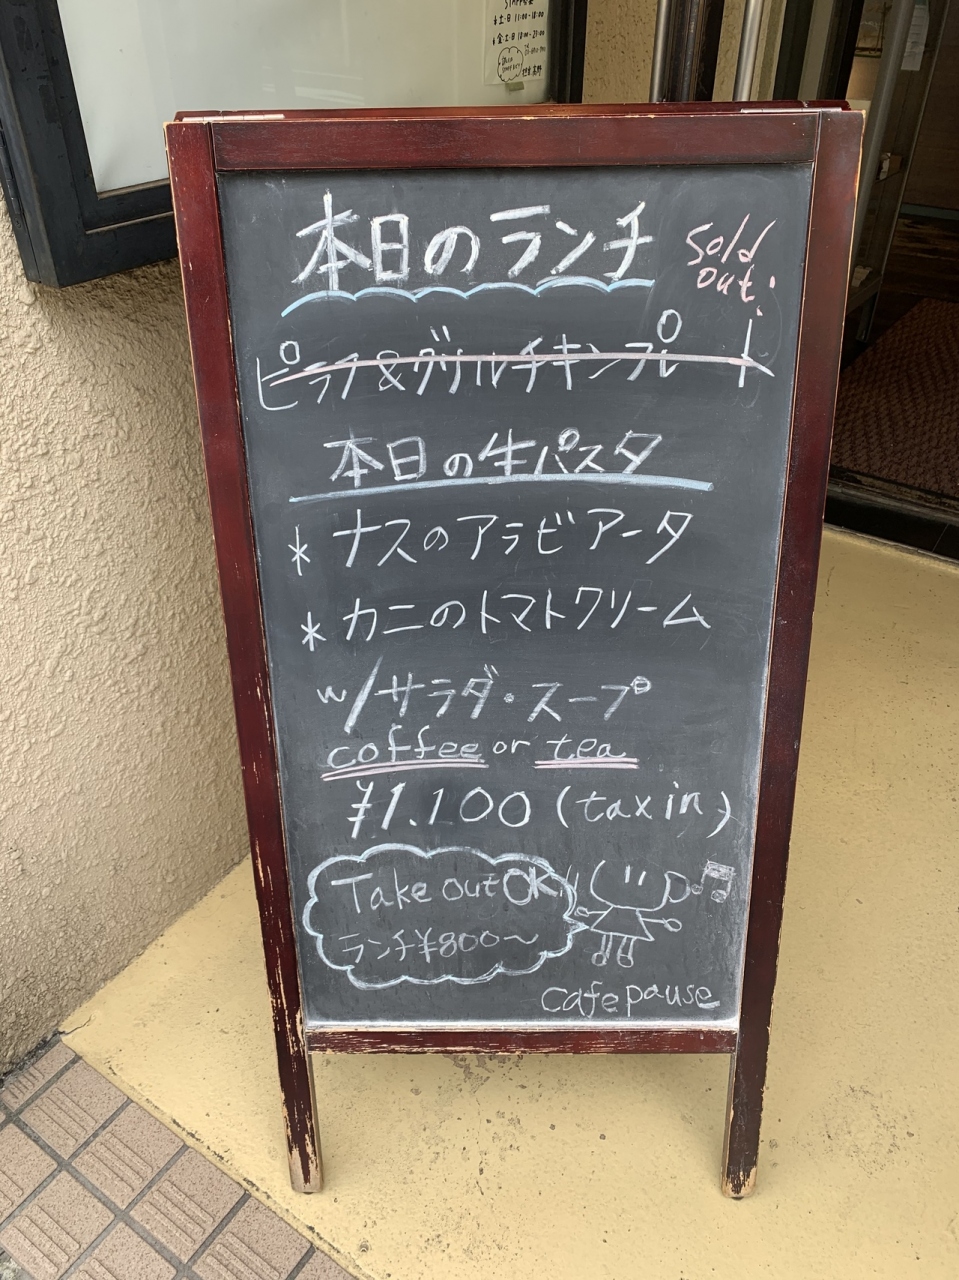 本日のランチ
Sold
out!
ピラフ&グリルチキンプレート
本日の生パスタ
* ナスのアラビアータ
* カニのトマトクリーム
w/サラダ・スープ
coffee or tea
¥1.100 (tax in)
Take out OK!!
ランチ¥800〜
cafe pause